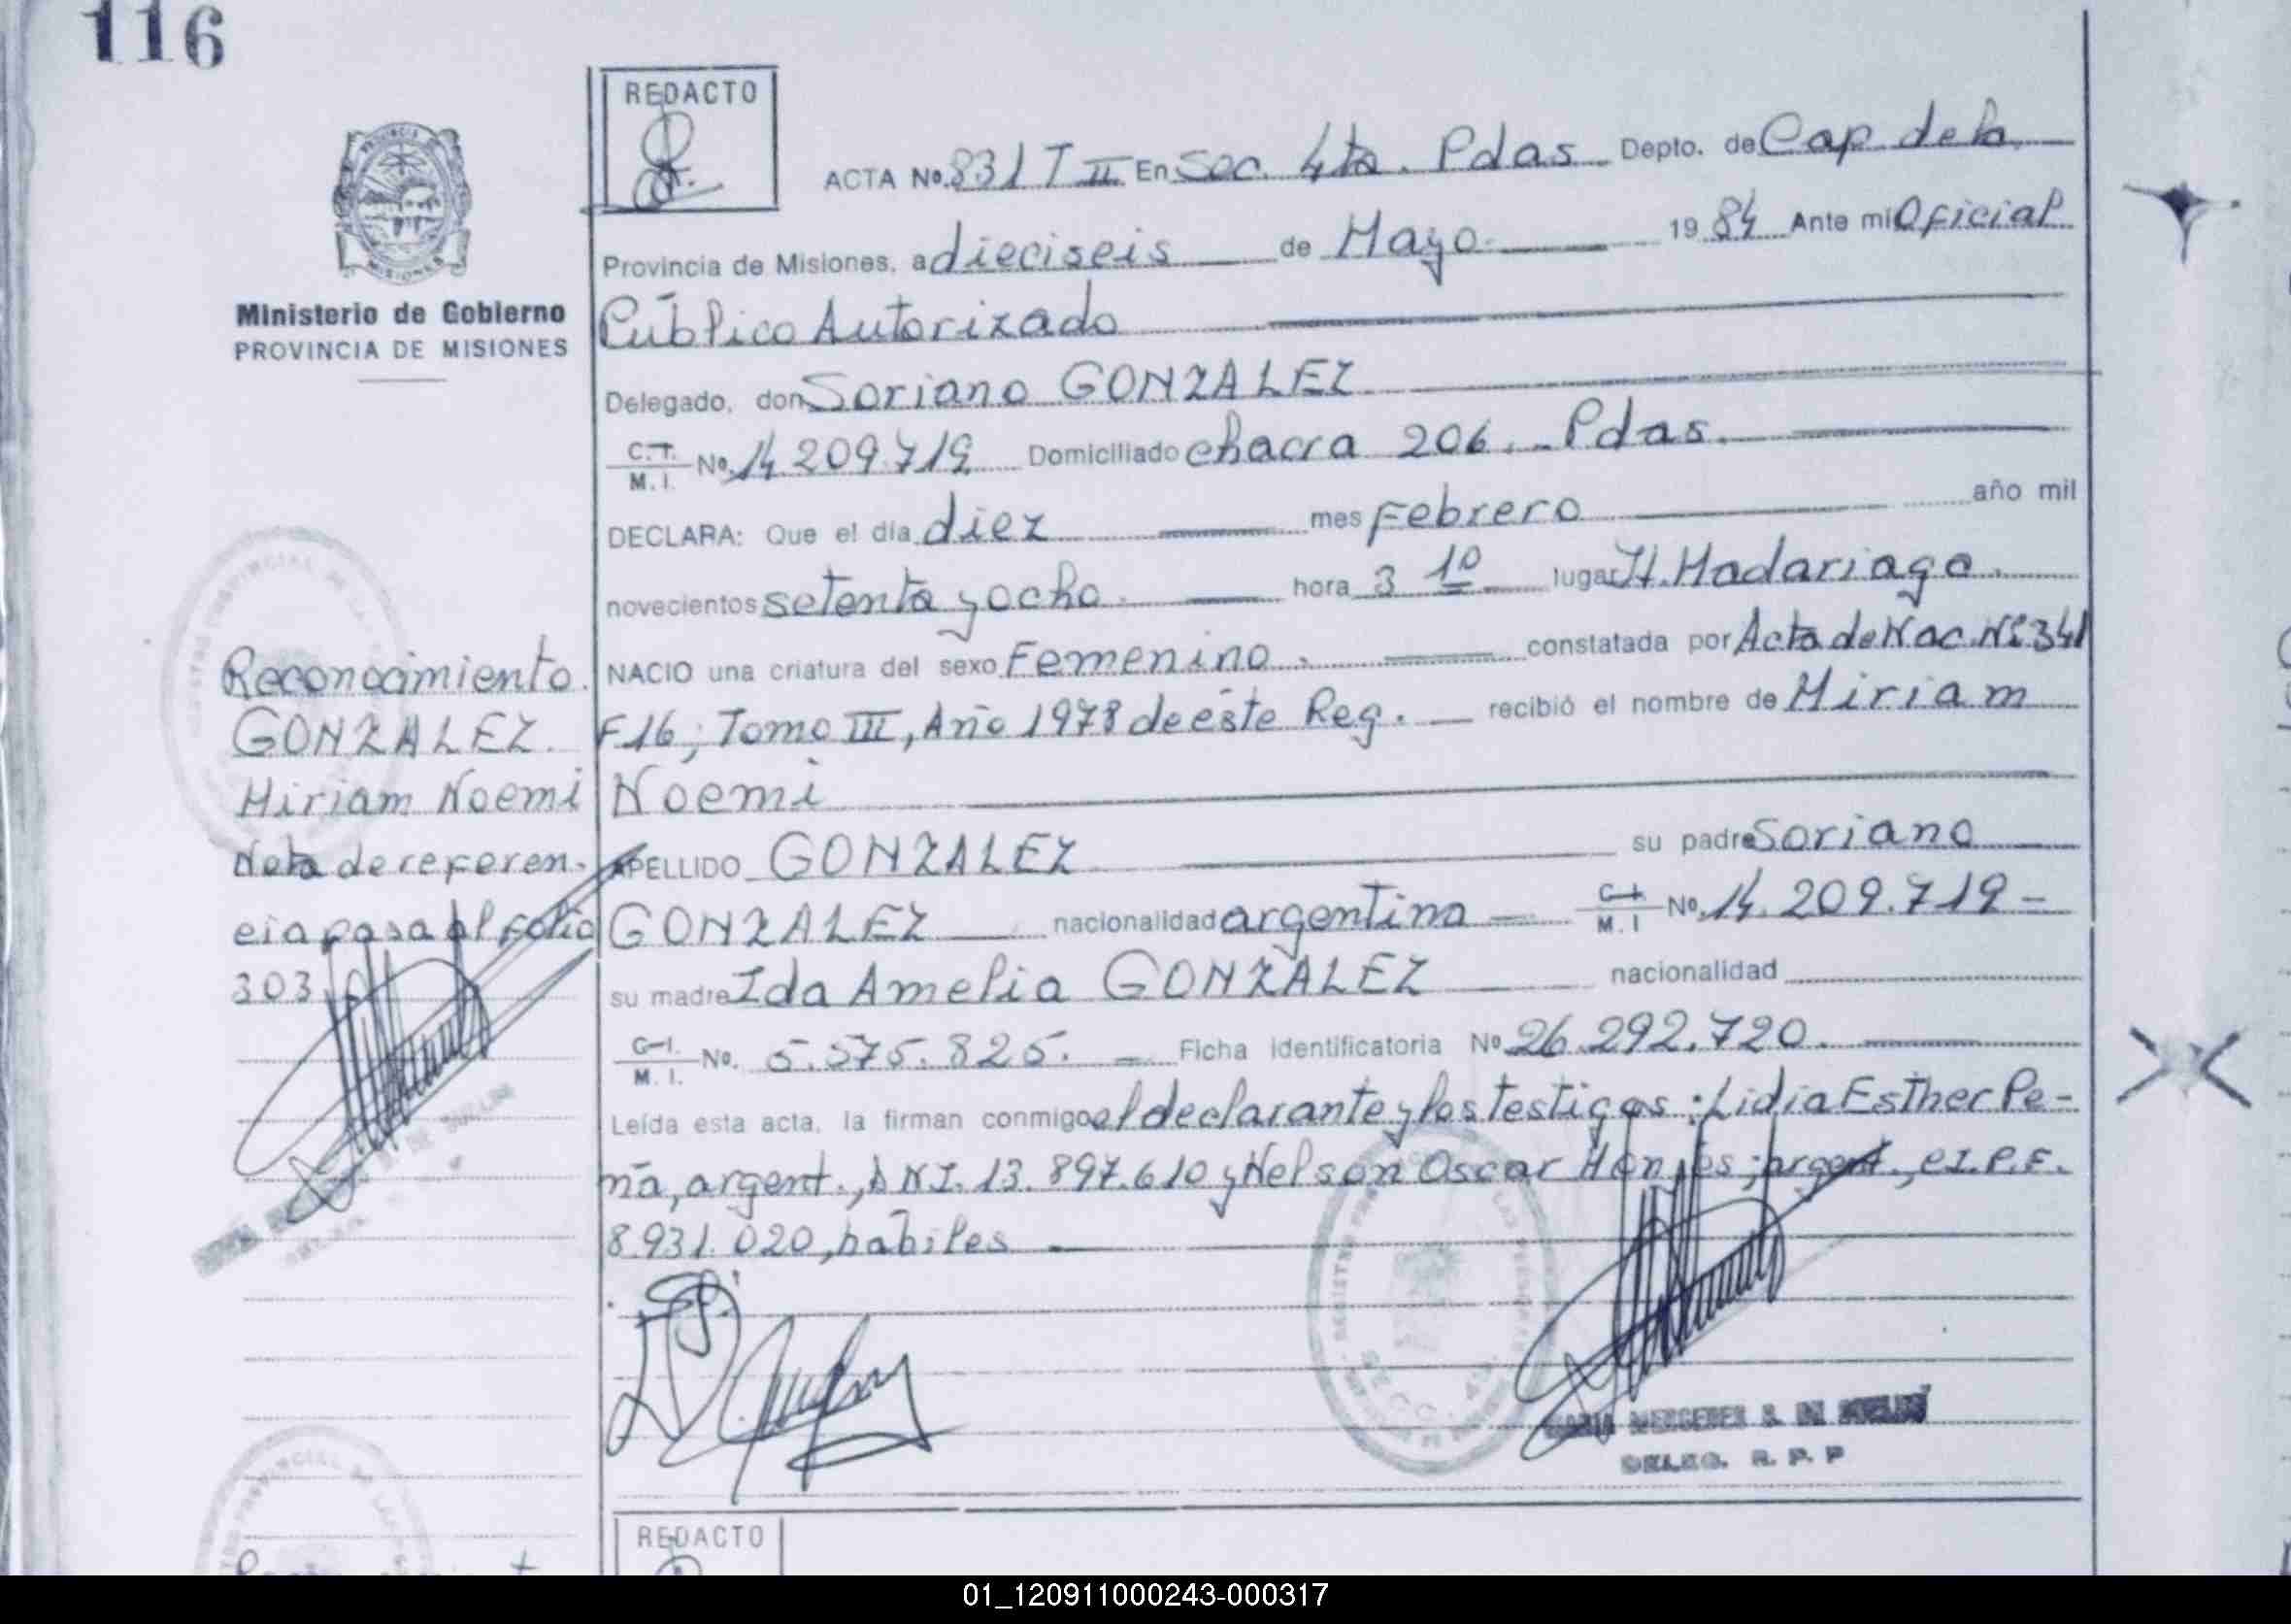 116
REDACTO
ACTA No. 831 T II En Sec. 4ta. Pdas Depto. de Cap. de la
Provincia de Misiones, a dieciseis de Mayo. 1984 Ante mi Oficial
Ministerio de Gobierno
PROVINCIA DE MISIONES
Público Autorizado
Delegado, don Soriano GONZALEZ
C.I. M.I. No. 14.209.719 Domiciliado chacra 206. Pdas.
DECLARA: Que el día diez mes Febrero año mil
novecientos setenta y ocho. hora 3 10 lugar H. Madariaga.
NACIO una criatura del sexo Femenino. constatada por Acta de Nac. Nº 341
F16, Tomo III, Año 1978 de éste Reg. recibió el nombre de Miriam
Noemi
APELLIDO GONZALEZ su padre Soriano
GONZALEZ nacionalidad argentina C.I. M.I No. 14.209.719-
su madre Ida Amelia GONZALEZ nacionalidad
C.I. M.I. No. 5.575.825. Ficha identificatoria No 26.292.720.
Leída esta acta, la firman conmigo el declarante y los testigos: Lidia Esther Pe-
ña, argent., DNI. 13.897.610 y Nelson Oscar argent., CI.P.F.
8.931.020, habiles
Reconocimiento.
GONZALEZ.
Miriam Noemi
Nota de referen.
cia pasa al folio
303
MARIA MERCEDES S. DE
DELEG. R. P. P
REDACTO
01_120911000243-000317